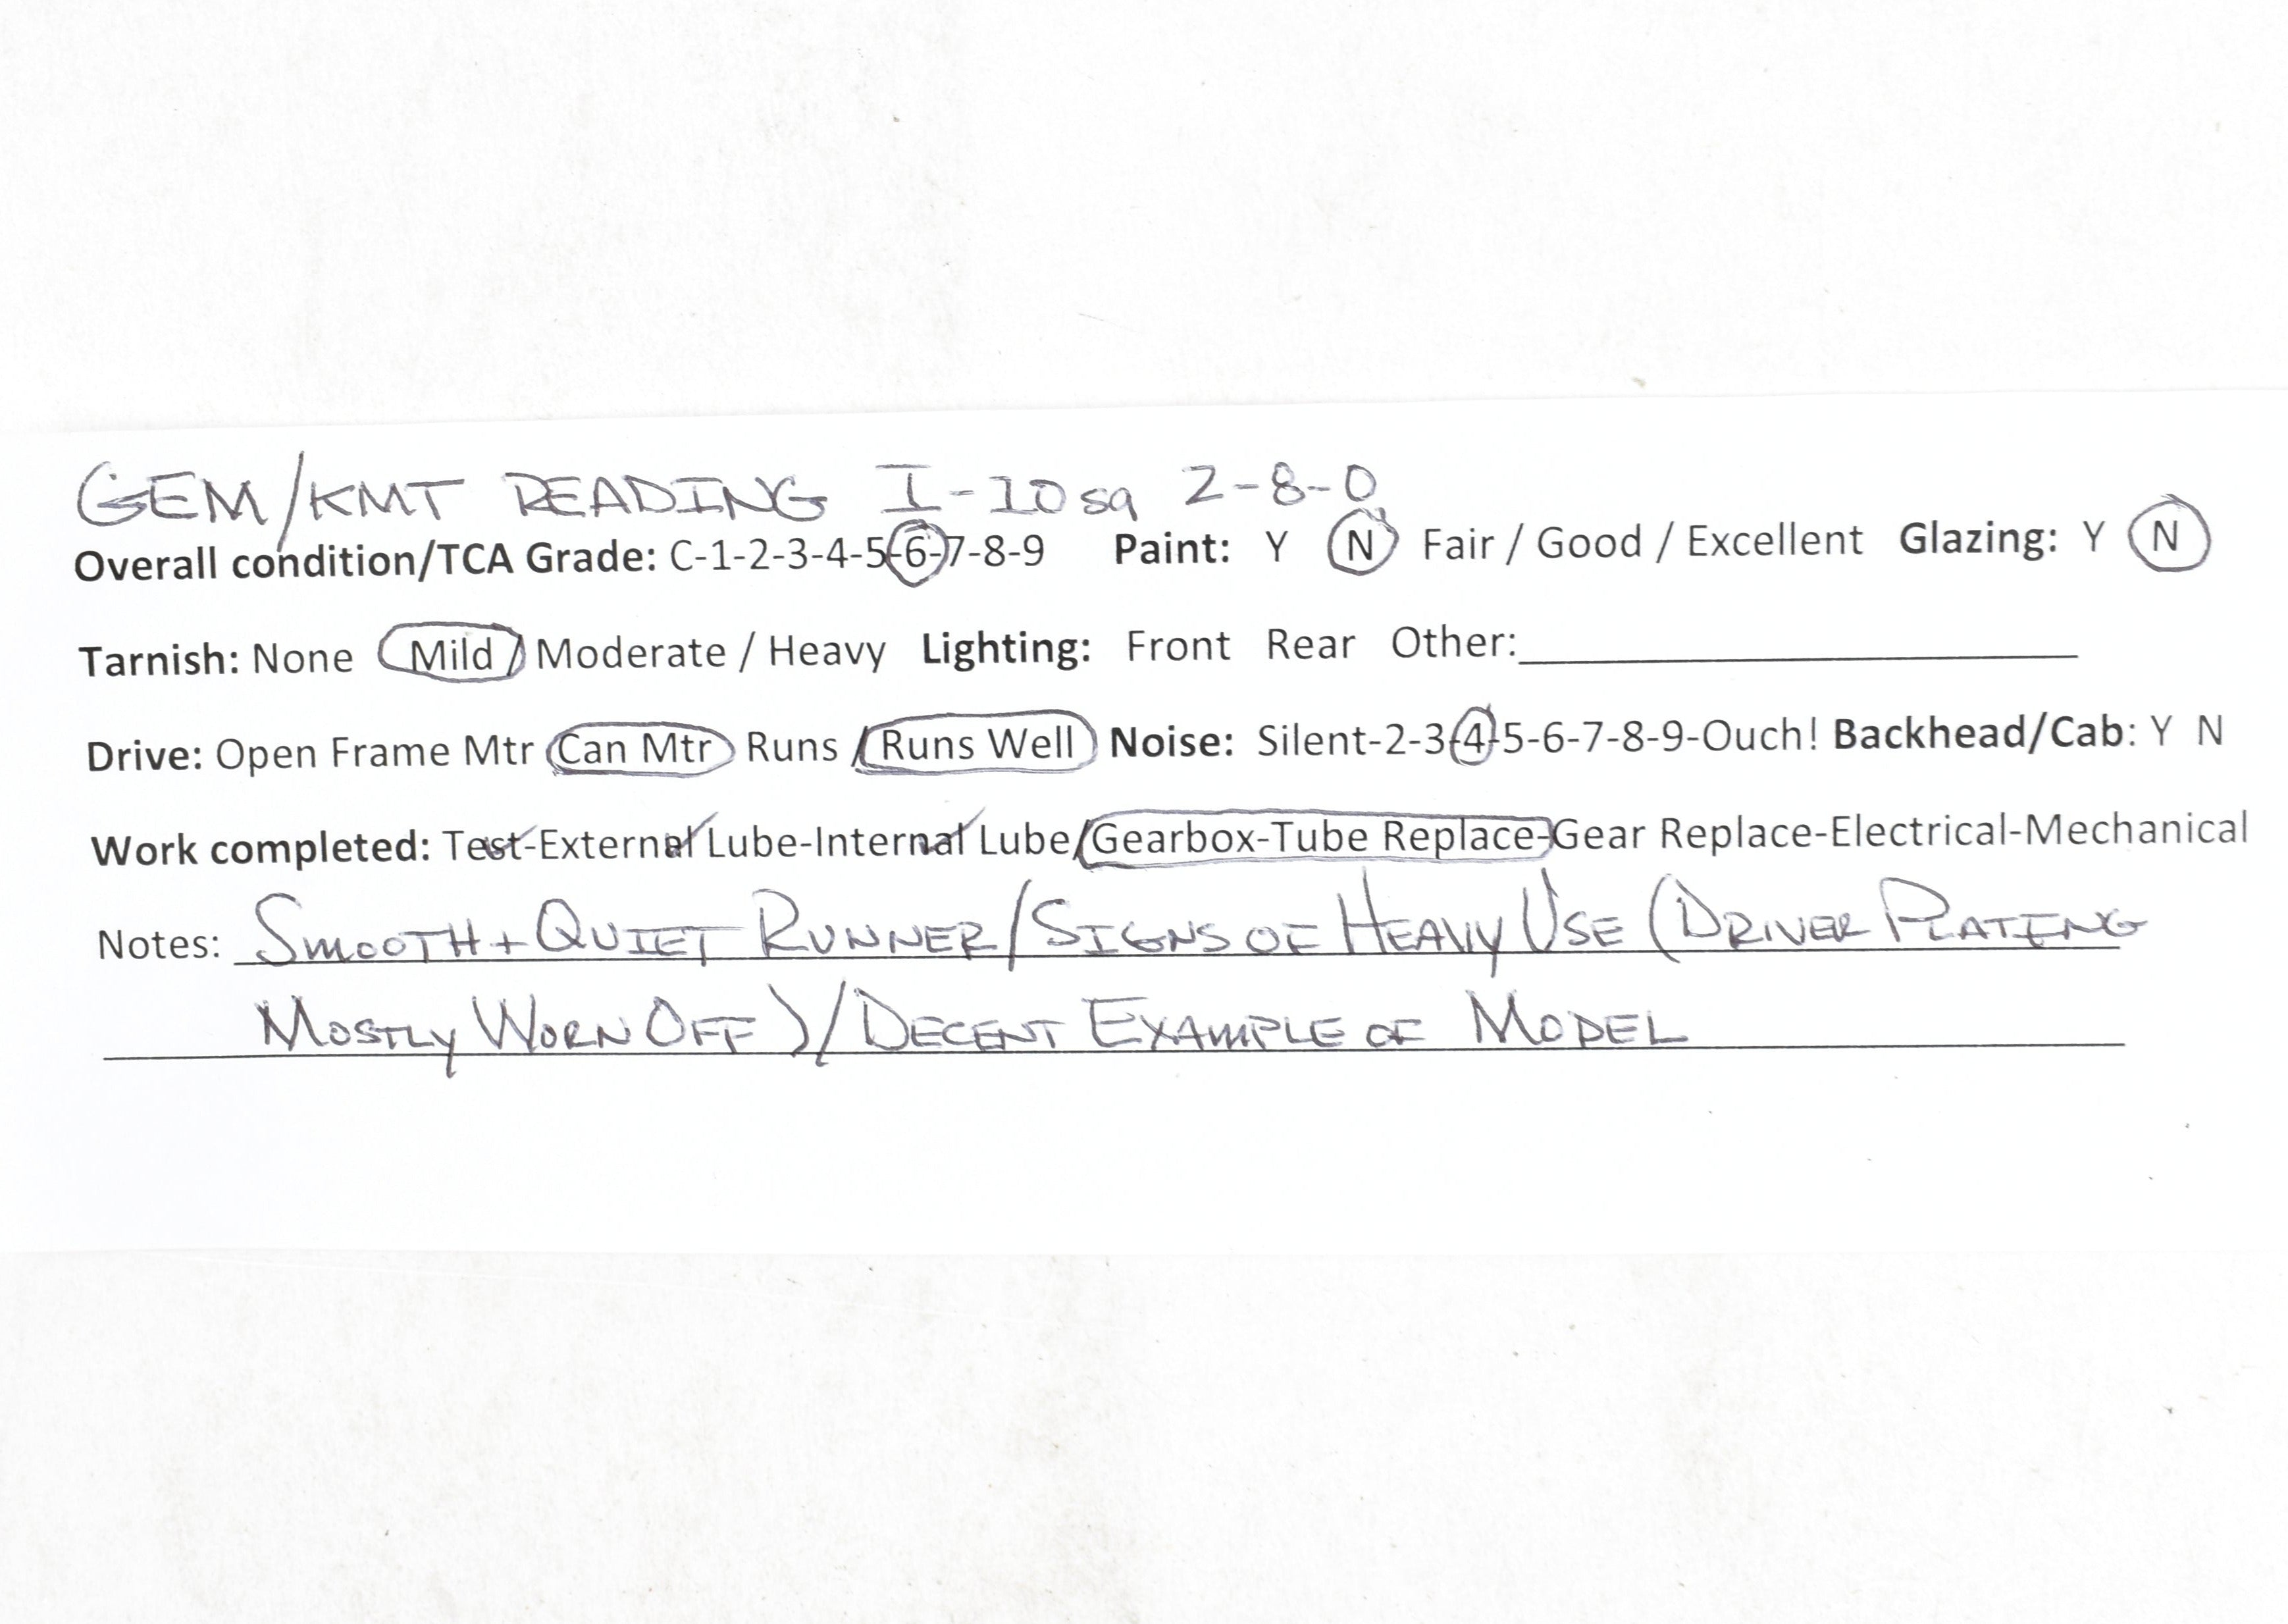 GEM/KMT READING I-10sq 2-8-0
Overall condition/TCA Grade: C-1-2-3-4-5-6-7-8-9 Paint: Y N Fair / Good / Excellent Glazing: Y N
Tarnish: None Mild / Moderate / Heavy Lighting: Front Rear Other:
Drive: Open Frame Mtr Can Mtr Runs / Runs Well Noise: Silent-2-3-4-5-6-7-8-9-Ouch! Backhead/Cab: Y N
Work completed: Test-External Lube-Internal Lube/Gearbox-Tube Replace-Gear Replace-Electrical-Mechanical
Notes: SMOOTH + QUIET RUNNER/SIGNS OF HEAVY USE (DRIVER PLATING
MOSTLY WORN OFF)/DECENT EXAMPLE OF MODEL